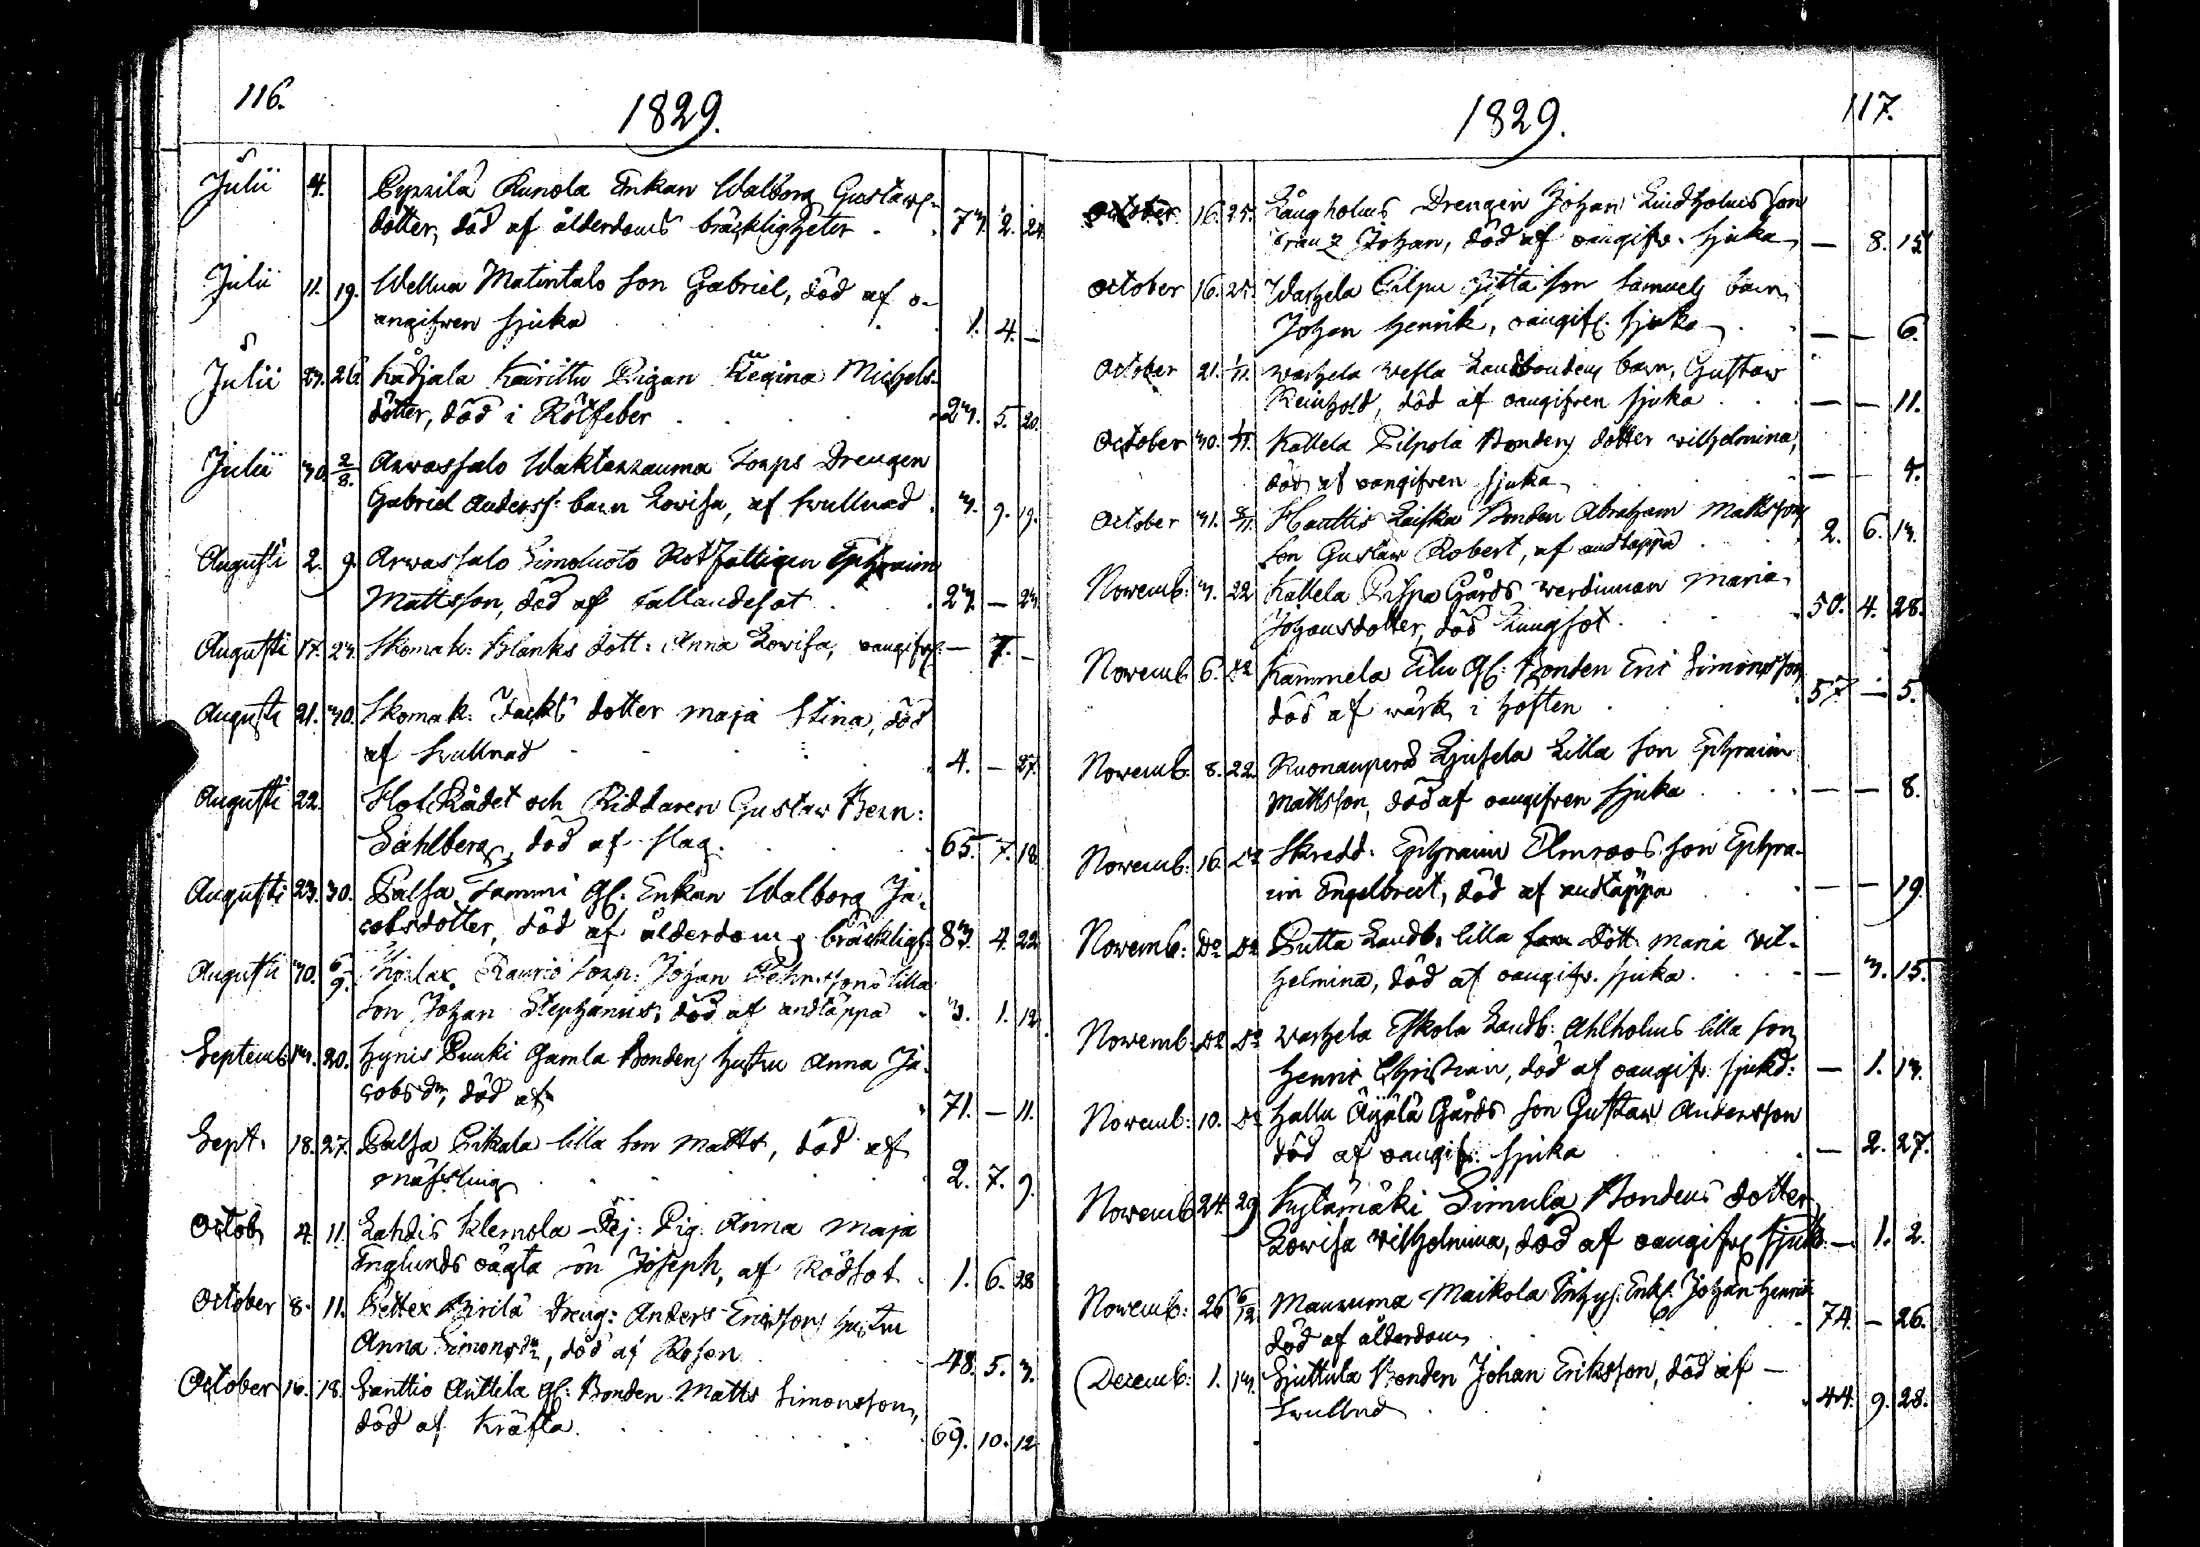 116.
1829.
Julii 4. Pyssilä Runola Enkan Walborg Gustafs-
dotter, död af ålderdoms bräckligheter 73. 2. 24.
Julii 11. 19. Wellua Matintalo son Gabriel, död af o-
angifwen sjuka 1. 4. —
Julii 23. 26. Kådjala Kairittu Pigan Regina Michels-
dotter, död i Rötfeber 23. 5. 20.
Julii 30. 2/8. Arwassalo Waktarrauma Torps Drengen
Gabriel Anderss: barn Lowisa, af swullnad 3. 9. 19.
Augusti 2. 9. Arwassalo Simoluoto Rotfattigen Ephraim
Mattsson, död af fallandesot 23. — 23.
Augusti 17. 23. Skomak: Blanks dott: Anna Lowisa, oangifw: — 7. —
Augusti 21. 30. Skomak: Jacks dotter Maja Stina, död
af swullnad 4. — 27.
Augusti 22. HofRådet och Riddaren Gustaw Bern:
Sahlberg, död af slag. 65. 7. 18.
Augusti 23. 30. Palsa Sammi gl: Enkan Walborg Ja-
cobsdotter, död af ålderdoms bräckligh: 83. 4. 22.
Augusti 30. 6/9. Raurio Torp: Johan lilla
son Johan Stephanus, död af andtäppa 3. 1. 12.
Septemb: 13. 20. Hynis Puuki Gamla Bondens hustru Anna Ja-
cobsdr, död af 71. — 11.
Sept. 18. 27. Palsa Pikala lilla son Matts, död af
mässling 2. 7. 9.
Octob: 4. 11. Lahdis Klemola Pig. Anna Maja
Englunds oägta son Joseph, af Rödsot 1. 6. 28
October 8. 11. Pirilä Dreng: Anders Ericssons hustru
Anna Simonsdr, död af Rosen 48. 5. 3.
October 10. 18. Santtio Anttila gl: Bonden Matts Simonsson,
död af Kräfta. 69. 10. 12
1829.
117.
October 16. 25. Långholms Drengen Johan Lindholms son
Franz Johan, död af oangifw. sjuka — 8. 15
October 16. 25. Warhela Pilpu son Samuels barn
Johan Henrik, oangif: sjuka — — 6.
October 21. 1/11. Warhela Wesla Landbondens barn, Gustaw
Reinhold, död af oangifwen sjuka — — 11.
October 30. 1/11. Kallela Pilpola Bondens dotter Wilhelmina,
död af oangifwen sjuka — — 4.
October 31. 8/11. Hauttis Laiska Bonden Abraham Mattssons
son Gustaw Robert, af andtäppa 2. 6. 13.
Novemb: 3. 22 Kallela Gårds werdinnan Maria
Johansdotter, död Lungsot 50. 4. 28.
Novemb 6. Do Kammela Eilu gl: Bonden Eric Simonsson
död af wärk i höften 57 — 5.
Novemb. 8. 22. Ruonanperä Ljusela Lilla son Ephraim
Mattsson, död af oangifwen sjuka — — 8.
Novemb: 16. Do Skredd: Ephraim Elmroos son Ephra-
im Engelbrect, död af andtäppa — — 19.
Novemb: Do Do Putta Landb: lilla dott: Maria Wil-
helmina, död af oangifw. sjuka. — 3. 15.
Novemb: Do Do Warhela Eskola Landb: Ahlholms lilla son
Henric Christian, död af oangifw. sjukd: — 1. 13.
Novemb: 10. Do Hallu Äyälä Gårds son Gustaw Andersson
död af oangifw: sjuka — 2. 27.
Novemb 24. 29 Kylämäki Simula Bondens dotter
Lowisa Wilhelmina, död af oangifw: sjukd: — 1. 2.
Novemb: 26 6/12 Maurumа Maikola Johan Henrik
död af ålderdom 74. — 26.
Decemb: 1. 13. Sjuttula Bonden Johan Eriksson, död af —
swullnd 44. 9. 28.